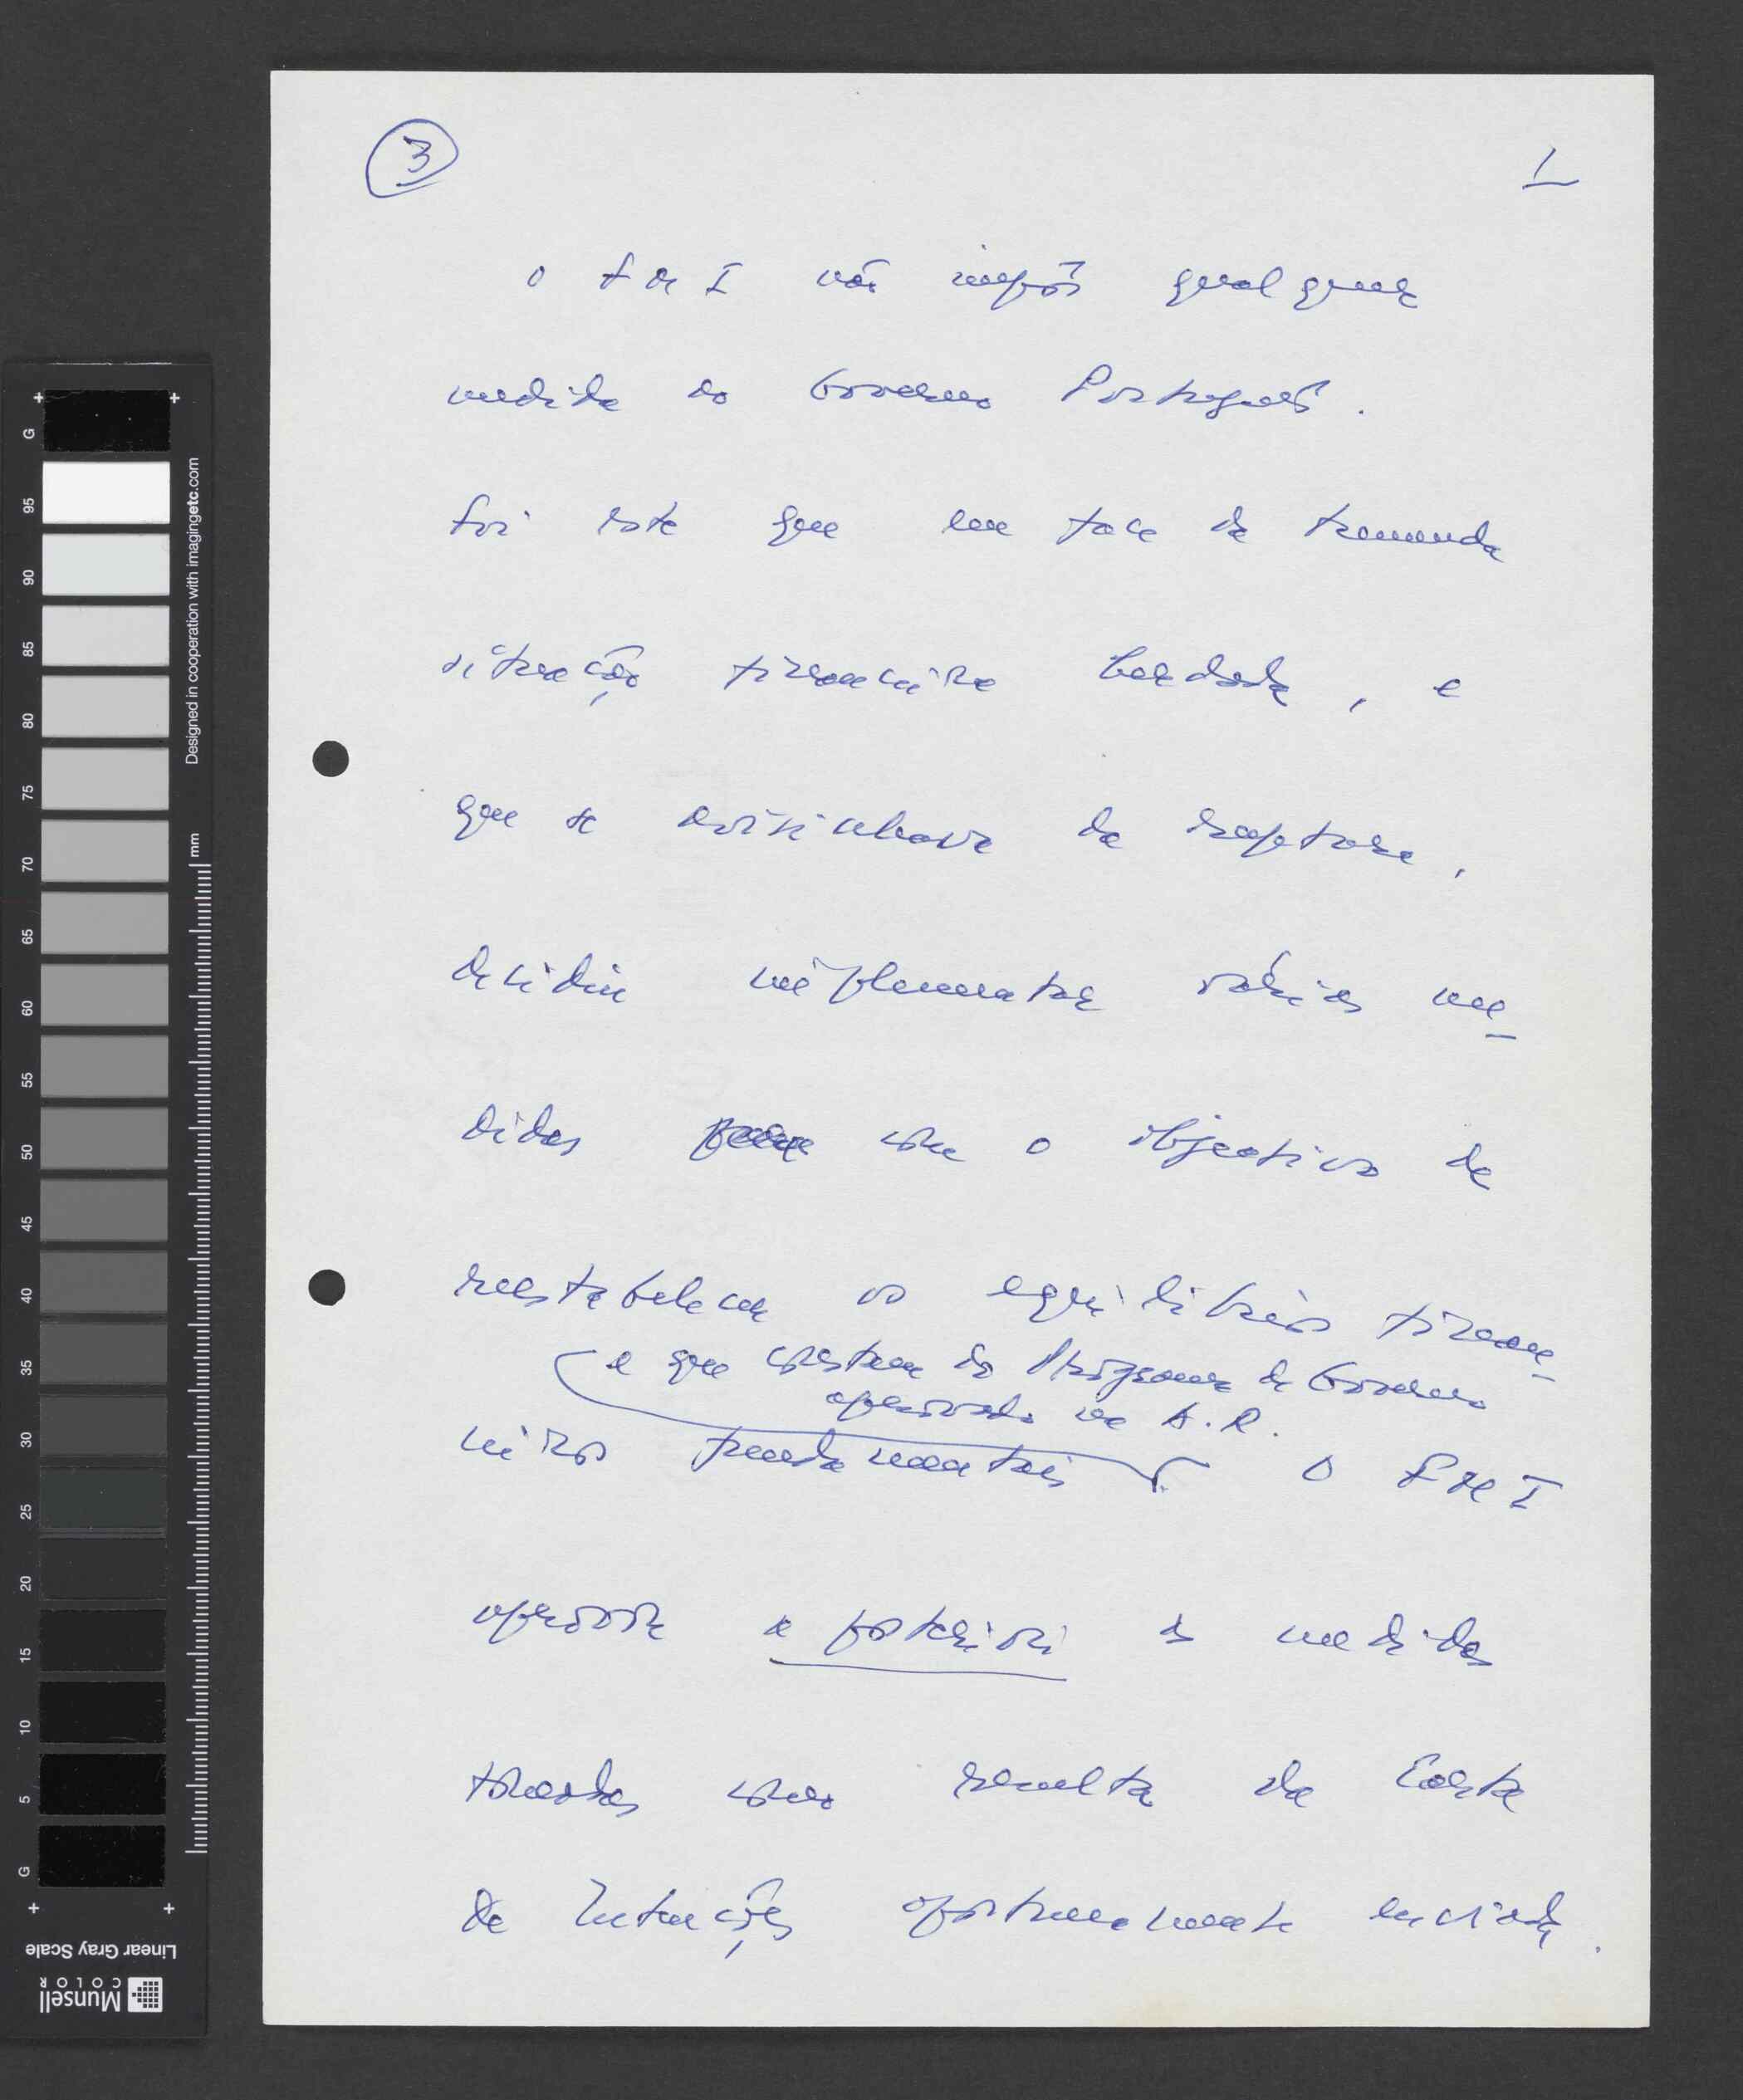 3
1
O FMI não impôs qualquer
medida ao Governo Português.
Foi este que em face da tremenda
situação financeira herdada, e
que se avizinhava da ruptura,
decidiu implementar várias me-
didas com o objectivo de
reestabelecer os equilíbrios finan-
e que constam do Programa de Governo
aprovado na A.R.
ceiros fundamentais. O FMI
aprova a posteriori as medidas
tomadas como resulta da Carta
de Intenções oportunamente enviada.
G
95
90
85
80
75
70
65
60
55
50
45
40
35
30
25
20
15
10
5
G
mm
Designed in cooperation with imagingetc.com
Linear Gray Scale
Munsell
COLOR